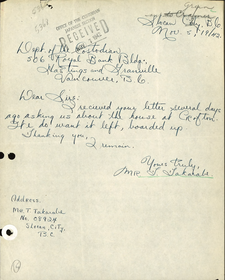 Slocan City, B.C.
Nov. 5, 1942.
OFFICE OF THE CUSTODIAN
RECEIVED
Dept. of the Custodian
506 Royal Bank Bldg.
Hastings and Granville
Vancouver, B.C.
Dear Sirs:
I recieved your letter several days
ago asking us about the house at Crofton.
We do want it left, boarded up
Thanking you,
I remain.
Yours truly,
Mr. T. Takenaka
Address
Mr. T. Takenaka
No. 08924
Slocan, City.
B.C.